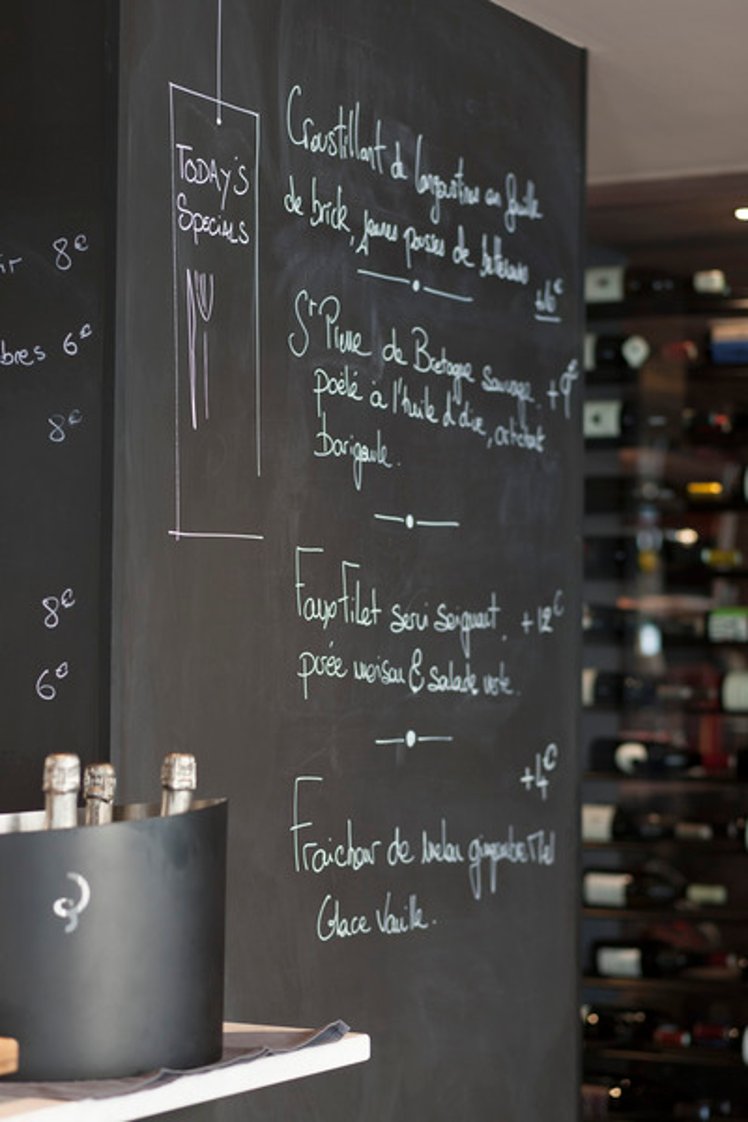 ir 8€
bres 6€
8€
8€
6€
TODAY'S
SPECIALS
Croustillant de langoustines en feuille
de brick, jeunes pousses de betteraves
St Pierre de Bretagne Sauvage. +9€
poêlé à l'huile d'olive, artichaut
barigoule.
Faux Filet servi saignant. +12€
purée maison & salade verte.
+4€
Fraicheur de melon gingembre Miel
Glace Vanille.